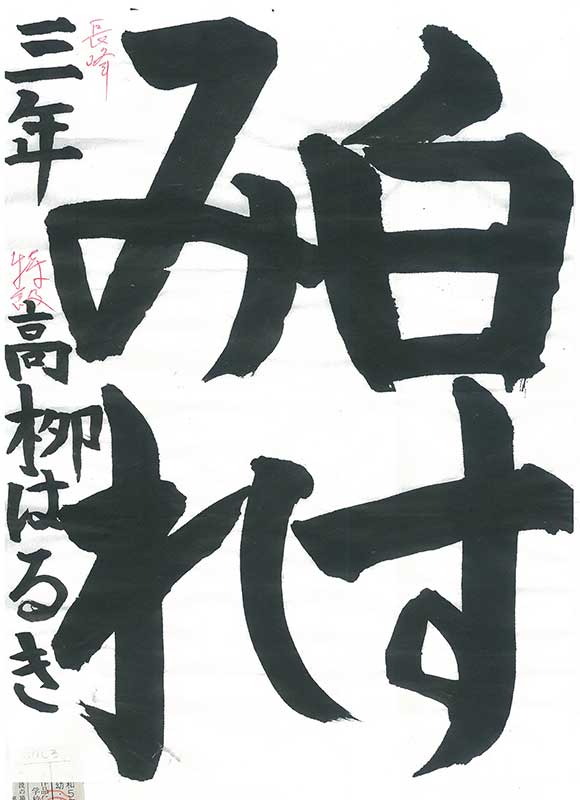 白す
みれ
長峰
三年 高柳はるき
特級